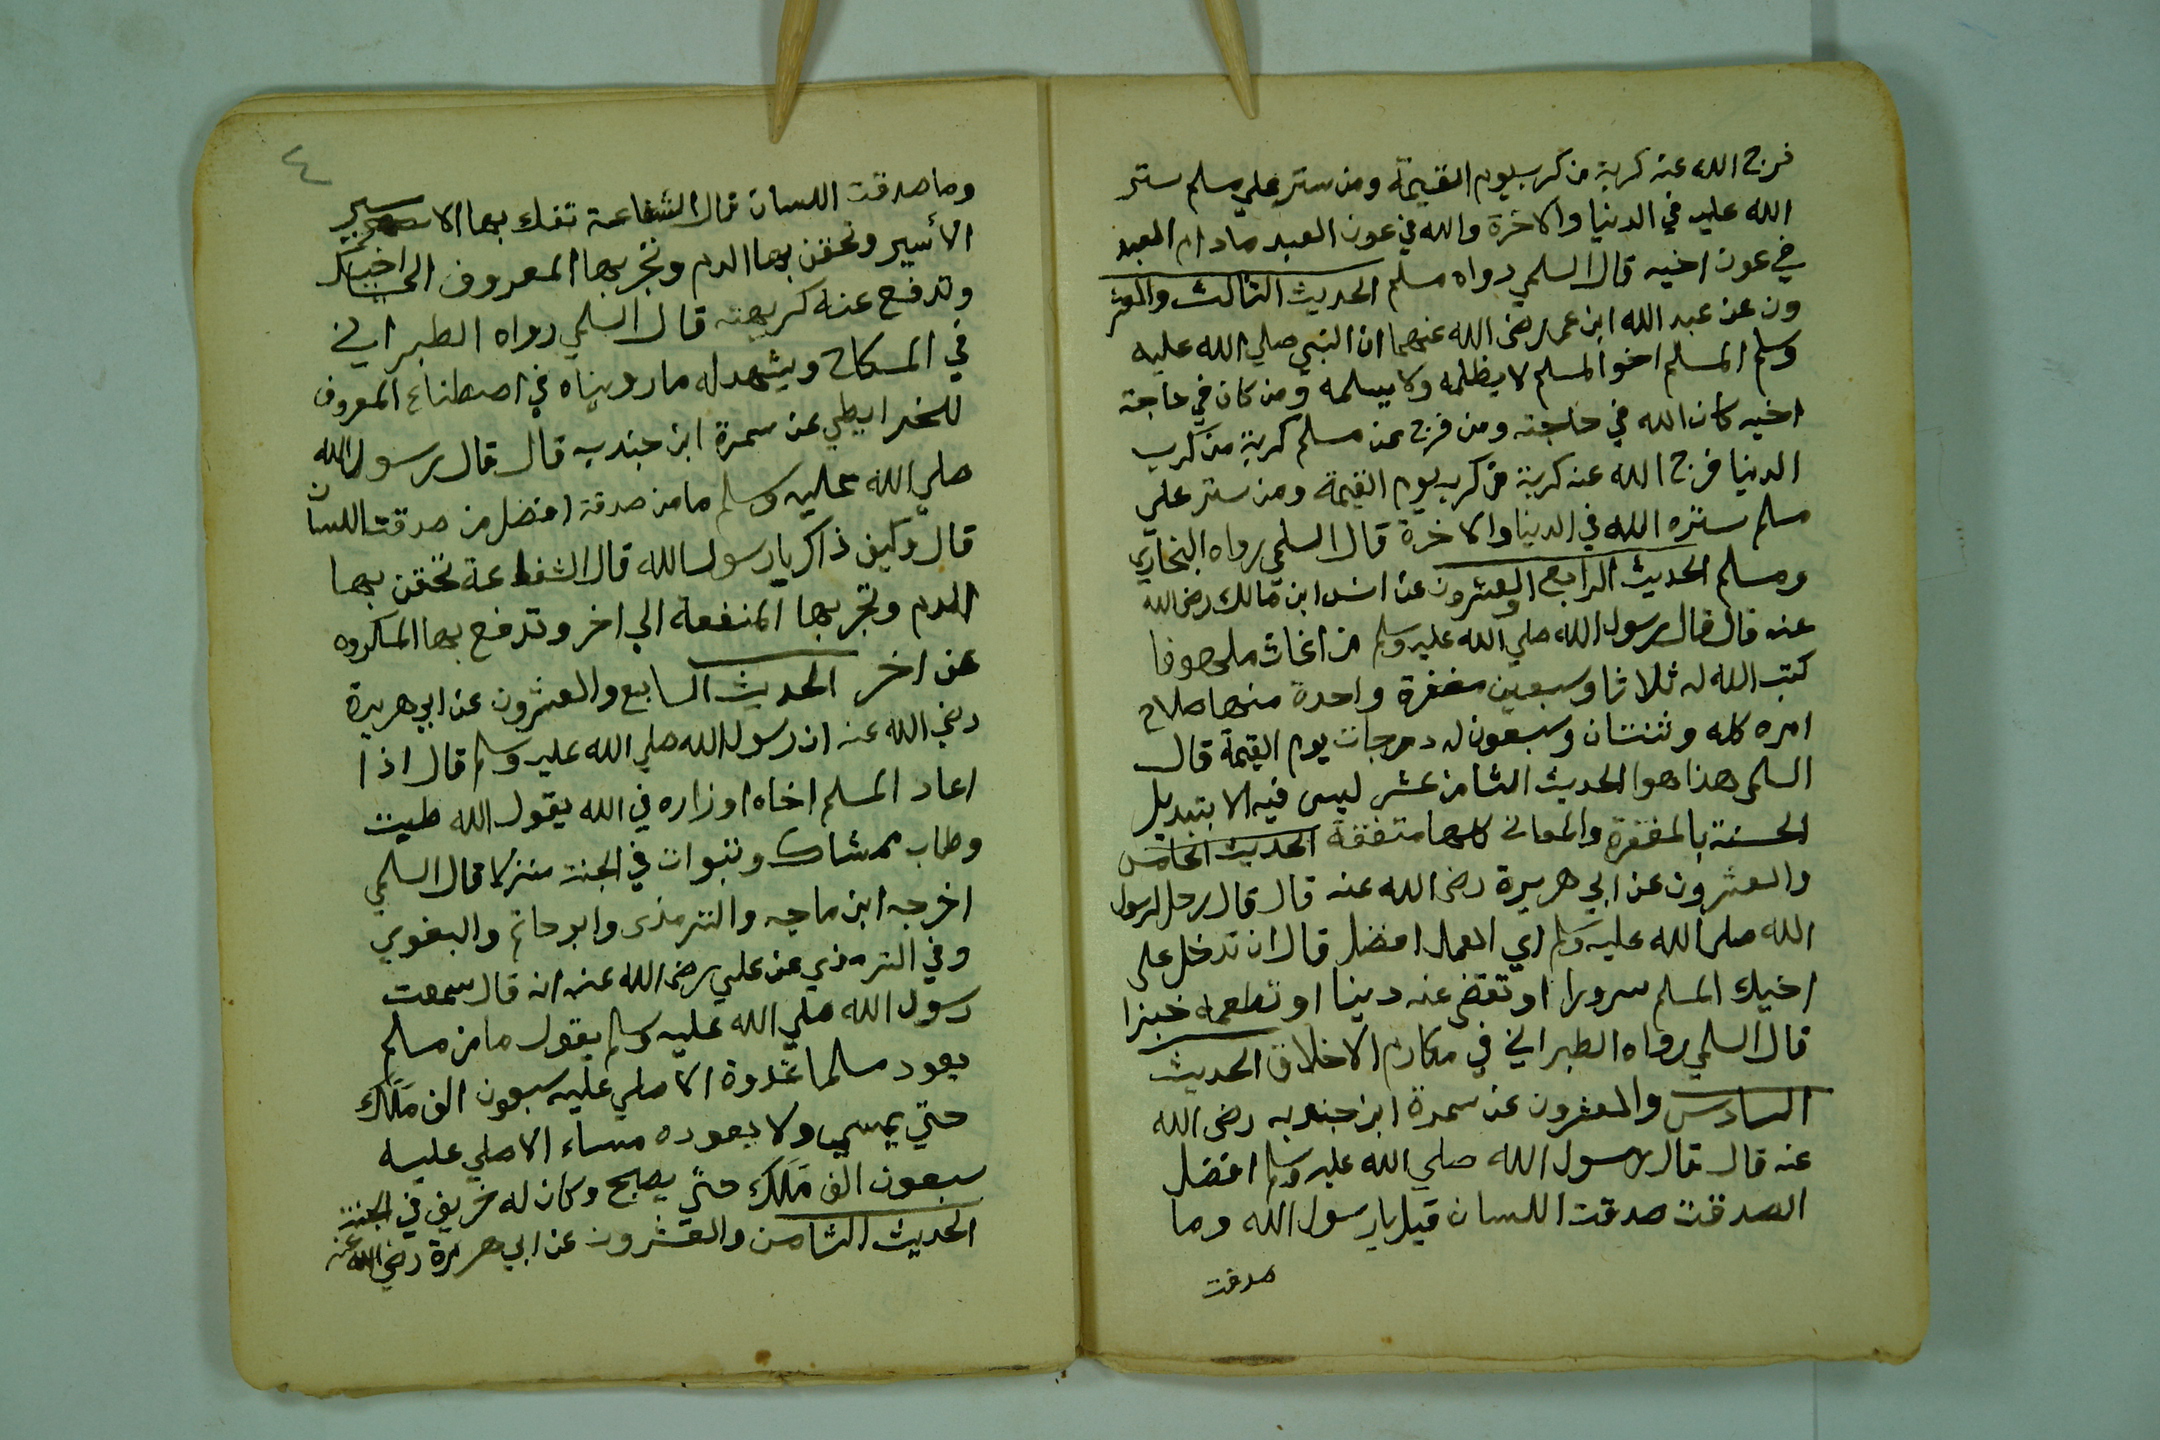 فرج الله عنه كربة من كرب يوم القيمة ومن ستر علي مسلم ستر
الله عليه في الدنيا والاخرة والله في عون العبد مادام العبد
في عون اخيه قال السلمي رواه مسلم الحديث الثالث والعشر
ون عن عبد الله ابن عمر رضى الله عنهما ان النبي صلي الله عليه
وسلم المسلم اخو المسلم لا يظلمه ولا يسلمه ومن كان في حاجة
اخيه كان الله في حاجته ومن فرج عن مسلم كربة من كرب
الدنيا فرج الله عنه كربة من كرب يوم القيمة ومن ستر علي
مسلم ستره الله في الدنيا والاخرة قال السلمي رواه البخاري
ومسلم الحديث الرابع والعشرون عن انس ابن مالك رضى الله
عنه قال قال رسول الله صلي الله عليه وسلم من اغاث ملهوفا
كتب الله له ثلاثا وسبعين مغفرة واحدة منها صلاح
امره كله وثنتان وسبعون له درجات يوم القيمة قال
السلمى هذا هو الحديث الثامن عشر ليس فيه الا بتبديل
الحسنة بالمغفرة والمعانى كلها متفقة الحديث الخامس
والعشرون عن ابي هريرة رضى الله عنه قال قال رجل لرسول
الله صلى الله عليه وسلم اي العمل افضل قال ان تدخل على
اخيك المسلم سرورا او تقضى عنه دينا او تطعمه خبزا
قال السلمي رواه الطبراني في مكارم الاخلاق الحديث
السادس والعشرون عن سمرة ابن جندب رضى الله
عنه قال قال رسول الله صلي الله عليه وسلم افضل
الصدقت صدقت اللسان قيل يا رسول الله وما
صدقت
٤
وما صدقت اللسان قال الشفاعة تفك بها الا سير
الأسير وتحقن بها الدم وتجر بها المعروف الى اخيك
وتدفع عنه كريهته قال السلمي رواه الطبراني
في المكاح ويشهد له ما رويناه في اصطناع المعروف
للخرايطي عن سمرة ابن جندب قال قال رسول الله
صلي الله عليه وسلم ما من صدقة افضل من صدقت اللسان
قال وكيف ذاك يا رسول الله قال الشفاعة تحقن بها
الدم وتجر بها المنفعة الي اخر وتدفع بها المكروه
عن اخر الحديث السابع والعشرون عن ابي هريرة
رضي الله عنه ان رسول الله صلي الله عليه وسلم قال اذا
اعاد المسلم اخاه او زاره في الله يقول الله طبت
وطاب ممشاك وتبوات في الجنت منزلا قال السلمي
اخرجه ابن ماجه والترمذى وابو حاتم والبغوي
وفي الترمذي عن علي رضى الله عنه انه قال سمعت
رسول الله صلي الله عليه وسلم يقول ما من مسلم
يعود مسلما غدوة الا صلي عليه سبعون الف مَلَك
حتي يمسي ولا يعوده مساء الا صلي عليه
سبعون الف مَلَك حتى يصبح وكان له خريف في الجنت
الحديث الثامن والعشرون عن ابي هريرة رضي الله عنه